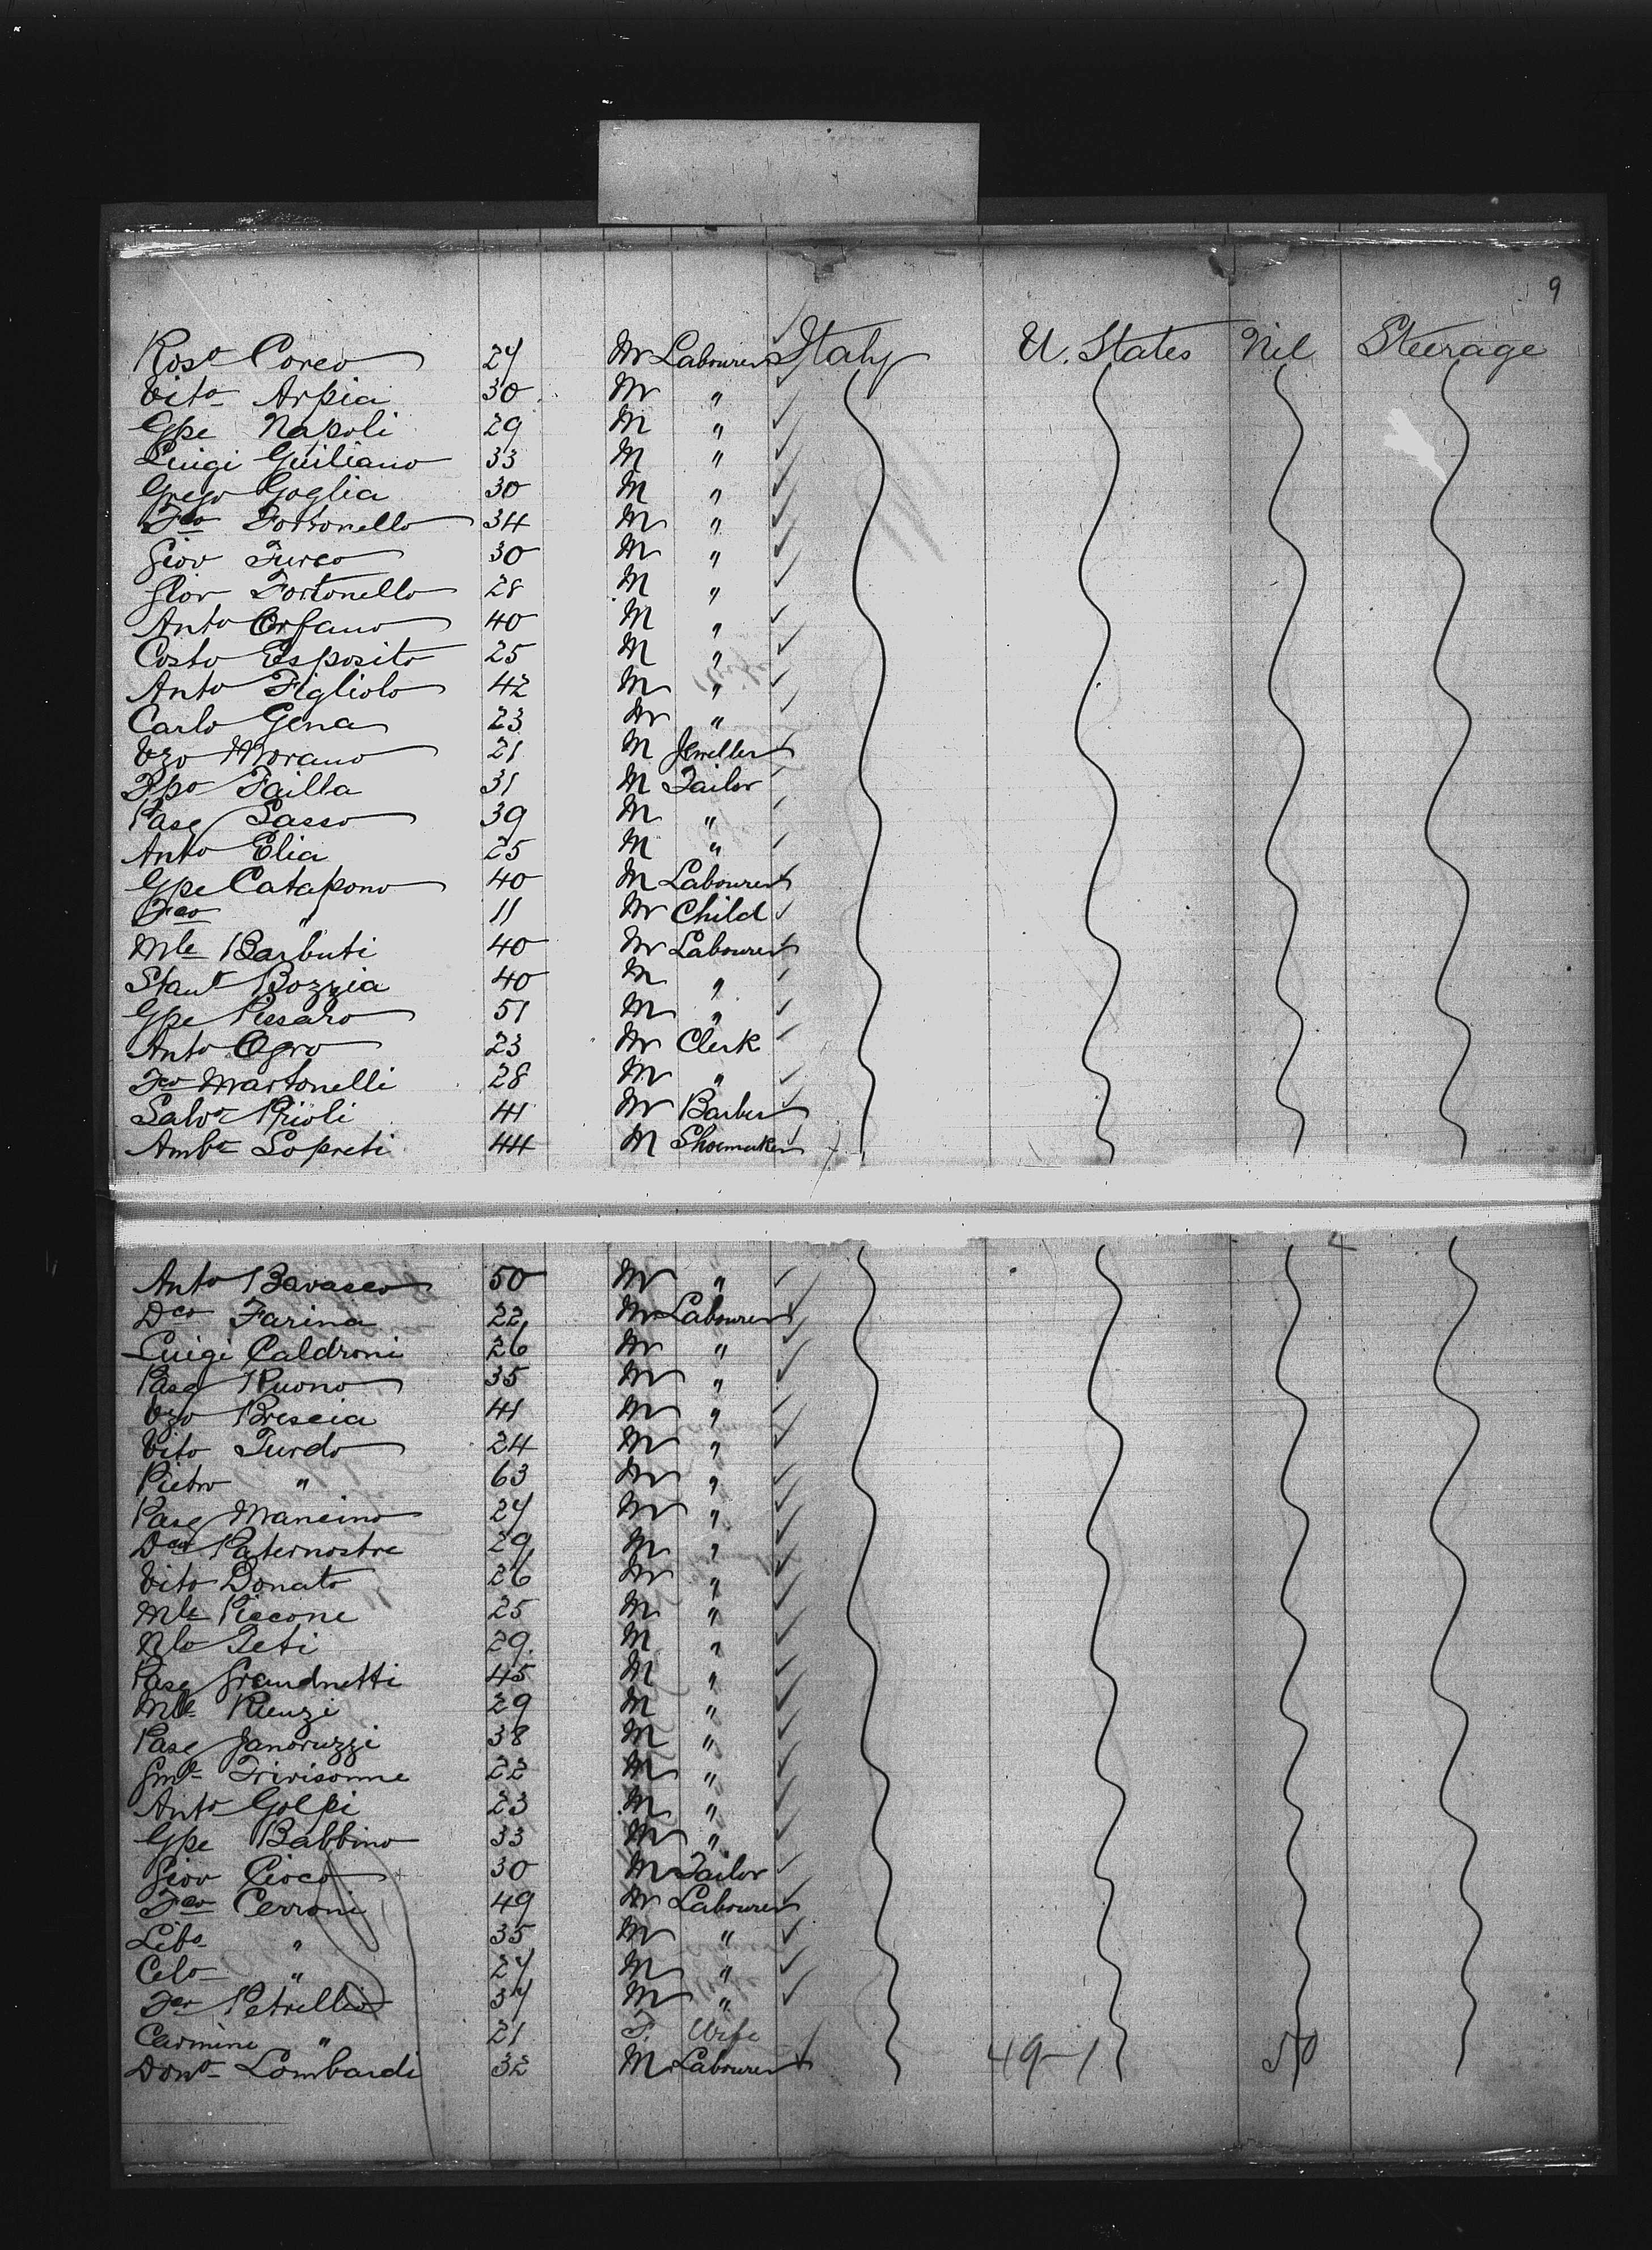 9
Roso Coreo 27 M Labourer Italy U. States Nil Steerage
Vito Arpia 30 M "
Gpe Napoli 29 M "
Luigi Guiliano 33 M "
Grego Goglia 30 M "
Fco Fortonello 34 M "
Giov Turco 30 M "
Giov Fortonello 28 M "
Anto Orfano 40 M "
Costo Esposito 25 M "
Anto Figliolo 42 M "
Carlo Gena 23 M "
Vzo Morano 21 M Jeweller
Fpo Failla 31 M Tailor
Pasq Sasso 39 M "
Anto Elia 25 M "
Gpe Catapono 40 M Labourer
Fco " 11 M Child
Mle Barbuti 40 M Labourer
Stano Bozzia 40 M "
Gpe Pessaro 51 M "
Anto Agro 23 M Clerk
Fco Martonelli 28 M "
Salvo Prioli 41 M Barber
Ambo Lopreti 44 M Shoemaker
Anto Bavasco 50 M "
Dco Farina 22 M Labourer
Luigi Caldroni 26 M "
Pasq Ruono 35 M "
Vzo Brescia 41 M "
Vito Turdo 24 M "
Pietro " 63 M "
Pasq Mancino 27 M "
Dco Paternostre 29 M "
Vito Donato 26 M "
Mle Piscone 25 M "
Nlo Teti 29 M "
Pasq Grandnetti 45 M "
Mle Rienzi 29 M "
Pasq Janoruzzi 38 M "
Gme Trivisonne 22 M "
Anto Golpi 23 M "
Gpe Babbino 33 M "
Giov Cioco 30 M Tailor
Fco Cerroni 49 M Labourer
Libo " 35 M "
Celo " 27 M "
Fco Petrello 37 M "
Carmine " 21 F. Wife
Dono Lombardi 32 M Labourer 49-1 50